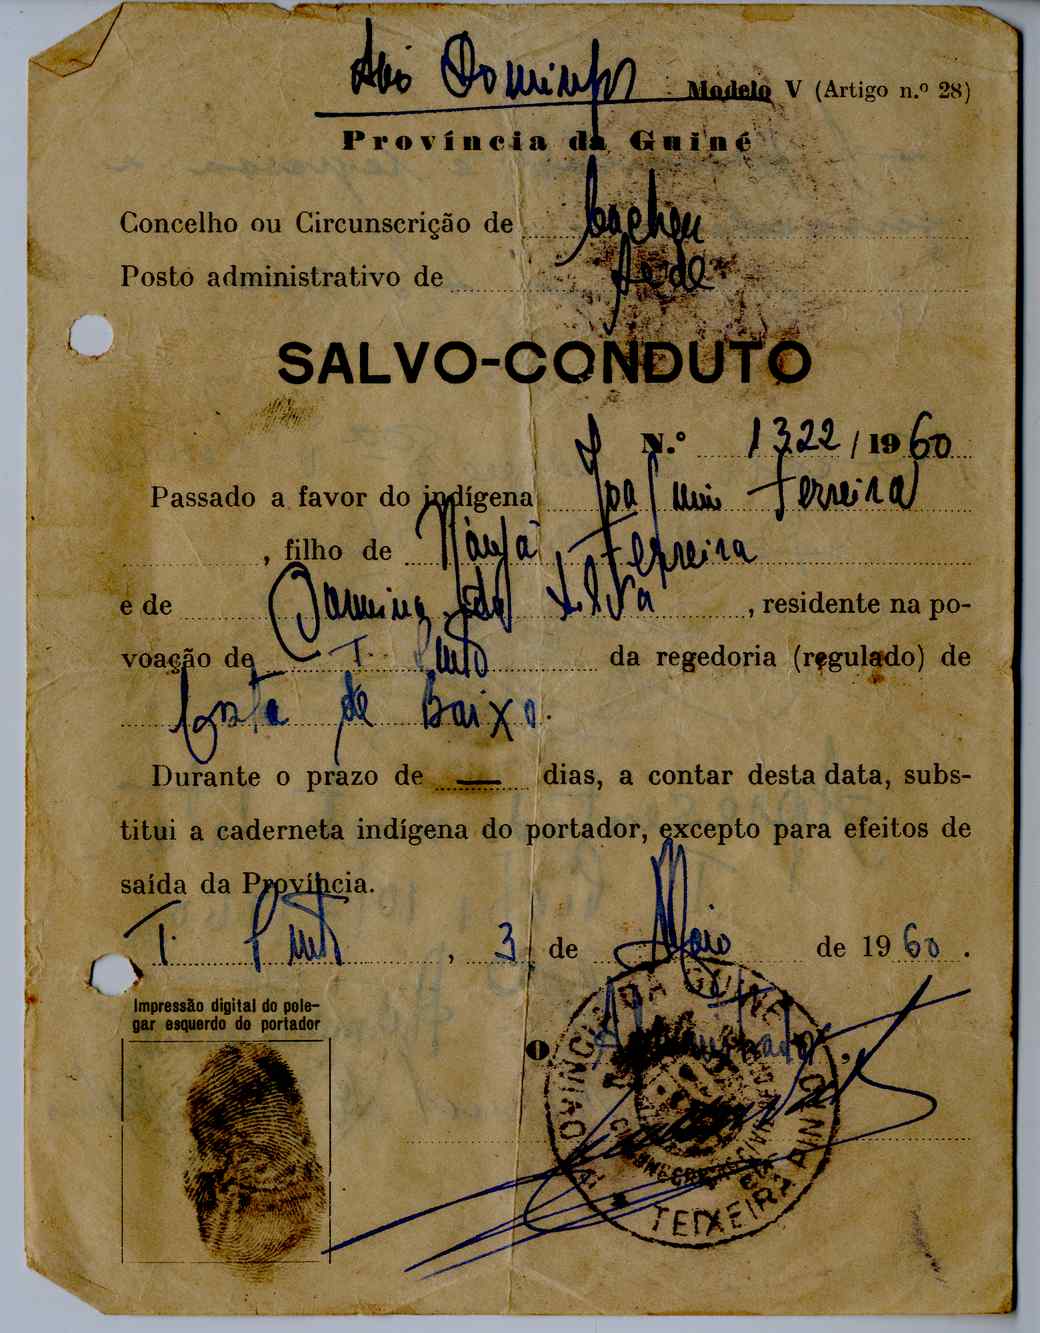 Modelo V (Artigo n.º 28)
Província da Guiné
Concelho ou Circunscrição de Cacheu
Posto administrativo de Sede
SALVO-CONDUTO
N.º 1322/1960
Passado a favor do indígena Joaquim Ferreira
, filho de Ferreira
e de Domingas da Silva, residente na po-
voação de T. Pinto da regedoria (regulado) de
Costa de Baixo.
Durante o prazo de — dias, a contar desta data, subs-
titui a caderneta indígena do portador, excepto para efeitos de
saída da Província.
T. Pinto, 3 de Maio de 1960.
Impressão digital do pole-
gar esquerdo do portador
O Administrador,
PROVÍNCIA DA GUINÉ
TEIXEIRA PINTO